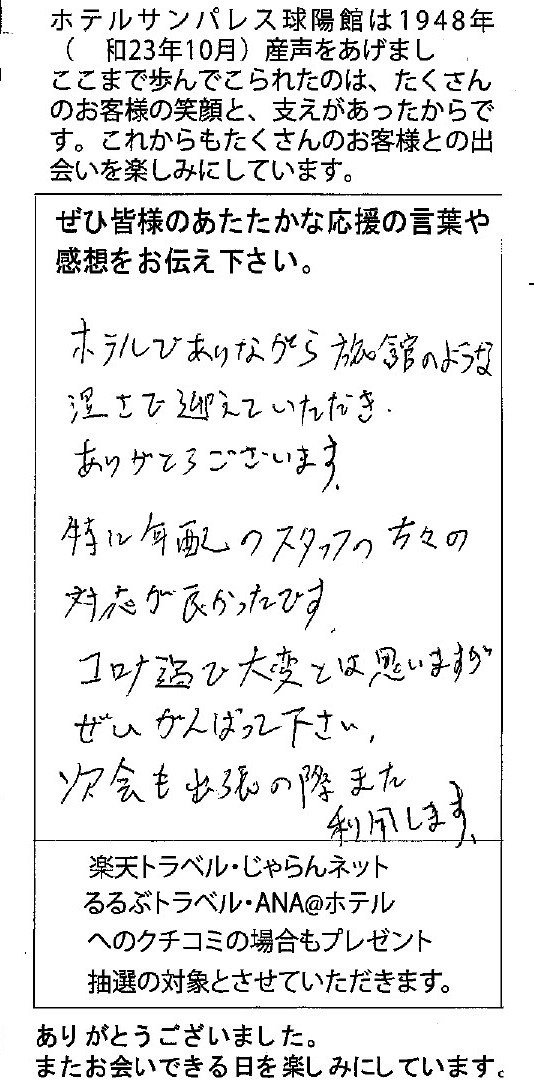 ホテルサンパレス球陽館は1948年
( 和23年10月）産声をあげまし
ここまで歩んでこられたのは、たくさん
のお客様の笑顔と、支えがあったからで
す。これからもたくさんのお客様との出
会いを楽しみにしています。
ぜひ皆様のあたたかな応援の言葉や
感想をお伝え下さい。
ホテルでありながら旅館のような
温さで迎えていただき.
ありがとうございます.
特に年配のスタッフの方々の
対応が良かったです.
コロナ過で大変とは思いますが
ぜひがんばって下さい.
次会も出張の際また
利用します.
楽天トラベル・じゃらんネット
るるぶトラベル・ANA@ホテル
へのクチコミの場合もプレゼント
抽選の対象とさせていただきます。
ありがとうございました。
またお会いできる日を楽しみにしています。